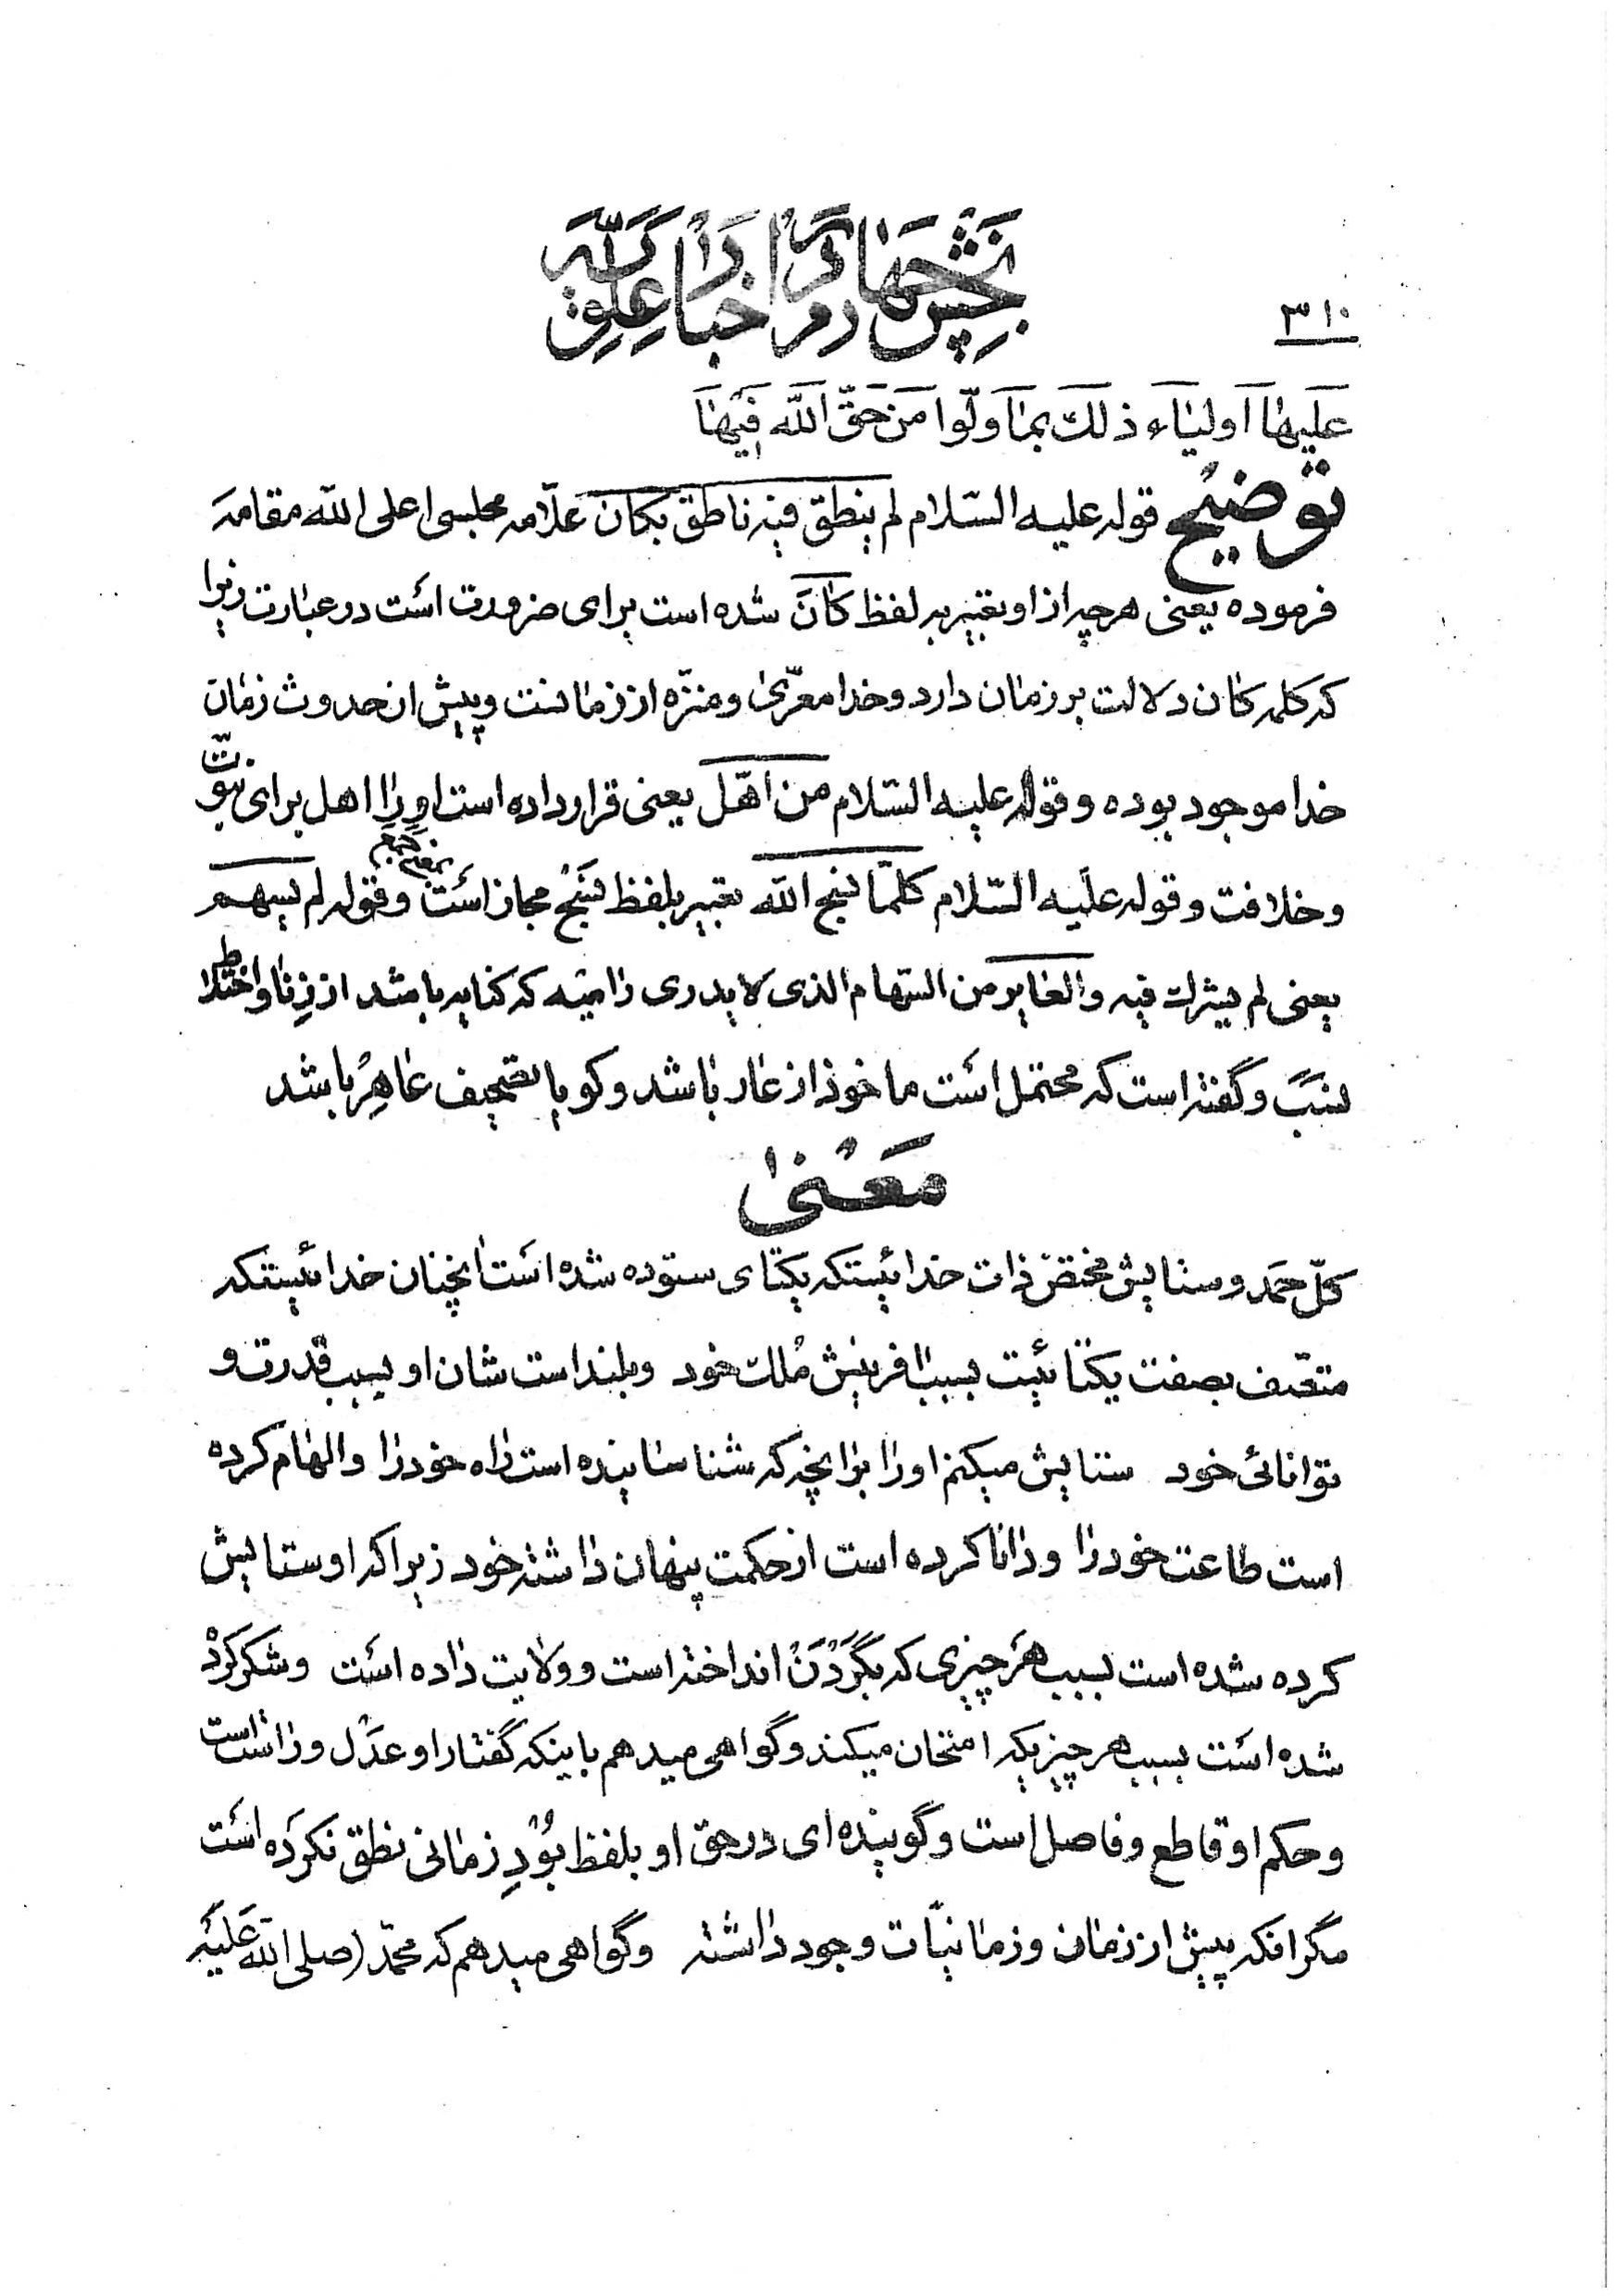 بخش چهارم در اخبار علویه
۳۱۰
عَلَیهٰا اَولیٰاءِ ذٰلکَ بمٰا وَلّوا مَن حَقّ اللّه فِیهٰا
توضیح قوله علیه السّلام لم ینطق فیه ناطق بکان علّامه مجلسی اعلی اللّه مقامه
فرموده یعنی هرچه از او تعبیر به لفظ کٰانَ شده است برای ضرورت است در عبٰارت زیرا
که کلمه کٰان دلالت بر زمٰان دارد و خدا معرّیٰ و منزّه از زمٰانست و پیش از حدوث زمٰان
خدا موجود بوده و قوله علیه السّلام من اهّل یعنی قرار داده است او را اهل برای نبوّت
و خلافت و قوله علیه السّلام کلّمٰا نسج اللّه تعبیر بلفظ نَسَجَ مجاز است و قوله لم یسهم
یعنی لم یشرک فیه والعٰایر من السّهام الذی لا یدری رٰامیه که کنایه باشد از زِنٰا و اختلاط
نسَب و گفته است که محتمل است ماخوذ از عٰار بٰاشد و گویا تصحیف عٰاهِر باشد
مَعْنیٰ
کلّ حمَد و ستٰایش مختصّ ذات خدائیستکه یکتٰای ستوده شده است آنچنان خدائیستکه
متّصف بصفت یکتٰائیت بسبب آفرینش مُلک خود و بلند است شان او بسبب قدرت و
توانائی خود ستٰایش میکنم او را بر آنچه که شناسانیده است رٰاه خود رٰا و الهٰام کرده
است طاعت خود رٰا و دٰانا کرده است از حکمت پنهان دٰاشته خود زیرا که او ستٰایش
کرده شده است بسبب هر چیزی که بگَرْدَنْ انداخته است و ولایت دٰاده است و شکر کردْ
شده است بسبب هر چیزیکه امتحان میکند و گواهی میدهم باینکه گفتار او عدْل و رٰاست است
و حکم او قاطع و فاصل است و گوینده ای در حق او بلفظ بُوْدِ زمٰانی نطق نکرَده است
مگر آنکه پیش از زمٰان و زمٰانیّات وجود دٰاشته و گواهی میدهم که محمّد (صلی اللّه عَلیَه